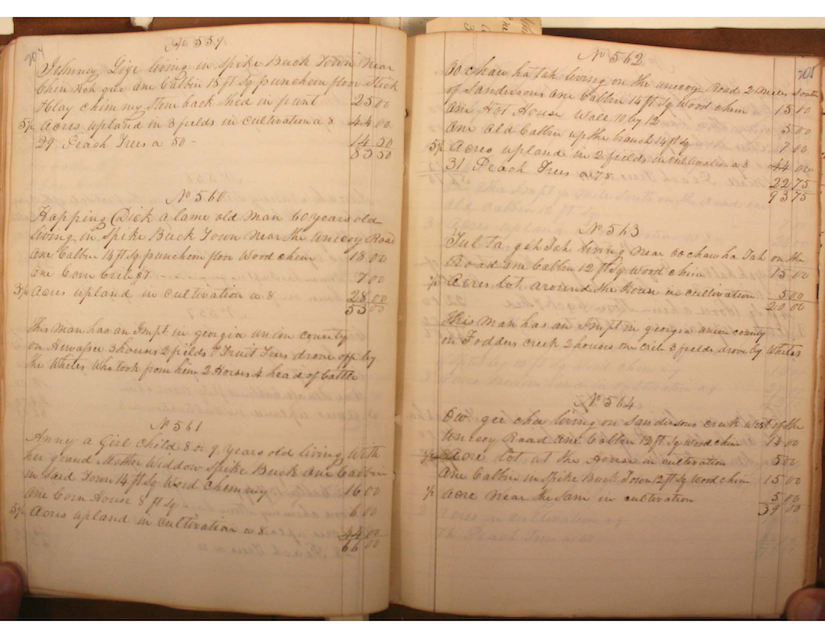 204
No 559
Johnney Dixe living in Spike Buck Town Near
Chin noh quee one Cabbin 15 ft Sq puncheon floor Stick
& Clay chimny Stone back Shed in front 25 00
5 1/2 Acres upland in 3 fields in cultivation @ 8 44 00
29 Peach Trees @ 50 - 14 50
83 50
No 560
Happing Dick a lame old man 60 years old
living in Spike Buck Town Near the Unecoy Road
one Cabbin 14 ft Sq puncheon floor Wood chim 18 00
one Corn Crib 7 00
3 1/2 Acres upland in cultivation @ 8 28 00
53 00
This Man has an Impt in georgia union county
on Hewassee 3 houses 2 fields Fruit Trees drove off by
the Whites Who took from him 2 Horses 4 head of Cattle
No 561
Anny a Girl Child 8 or 9 years old living With
her grand Mother Widdow Spike Buck One Cabbin
in Said Town 14 ft Sq Wood Chemney 16 00
one Corn House 8 ft Sq 6 00
5 1/2 Acres upland in Cultivation @ 8 44 00
66 00
205
No 562
Oo chaw ha tah living on the unecoy Road 2 miles South
of Sandersons one Cabbin 14 ft Sq Wood chim 15 00
one Hot House Wall 10 by 12 5 00
one Old Cabbin up the branch 14 ft Sq 7 00
5 1/2 Acres upland in 2 fields in cultivation @ 8 44 00
31 Peach Trees @ 75 22 75
93 75
No 563
Tul ta geh Teh living Near Oo chaw ha Tah on the
Road one Cabbin 12 ft Sq Wood chim 15 00
Acres lot around the house in cultivation 5 00
20 00
This Man has an Impt in georgia union county
on Fodders creek 2 houses one Crib 3 fields drove by Whites
No 564
Ow gie chee living on Sandersons creek West of the
Unecoy Road one Cabbin 12 ft Sq Wood chim 14 00
Acre lot at the House in cultivation 5 00
one Cabbin in Spike Buck Town 12 ft Sq Wood chim 15 00
1/2 Acre Near the Sam in cultivation 5 00
39 00